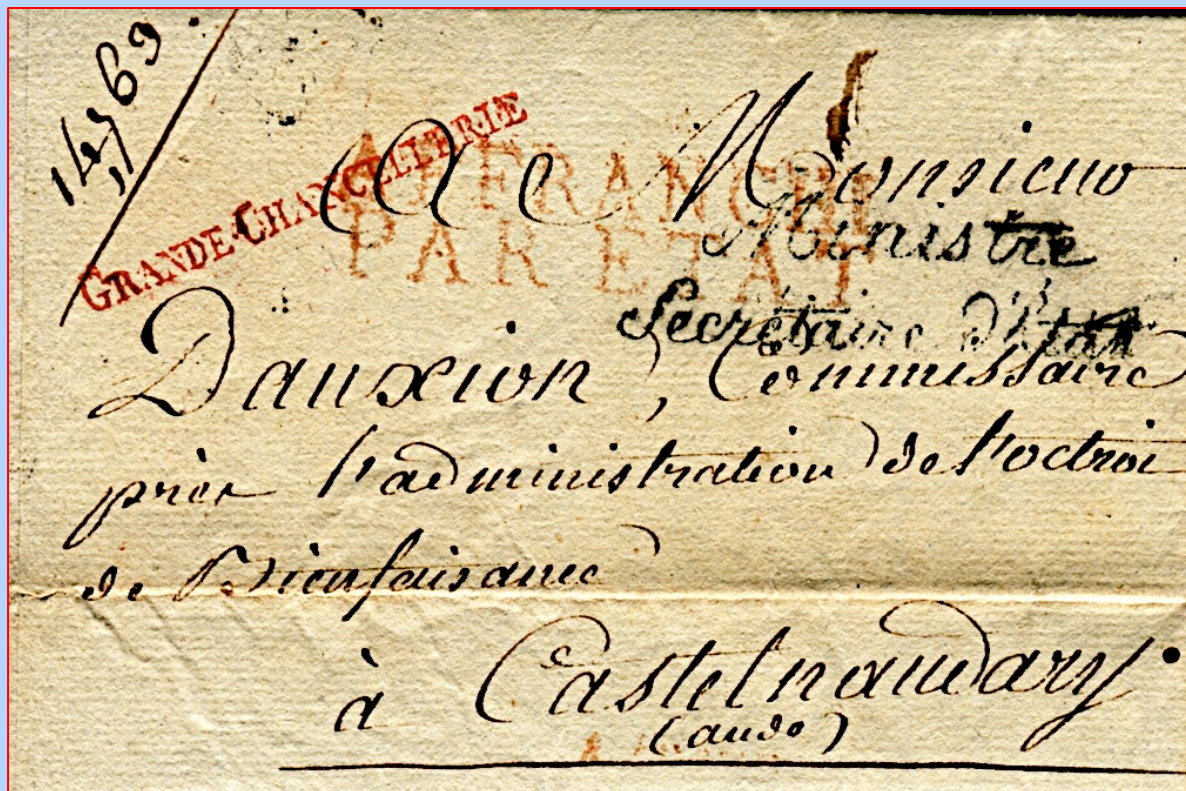 14969
GRANDE-CHANCELLERIE
AFFRANCHI
PAR ETAT
A Monsieur
Ministre
Secrétaire d'Etat
Dauxion, Commissaire
près l'administration de l'octroi
de Bienfaisance
à Castelnaudary.
(aude)